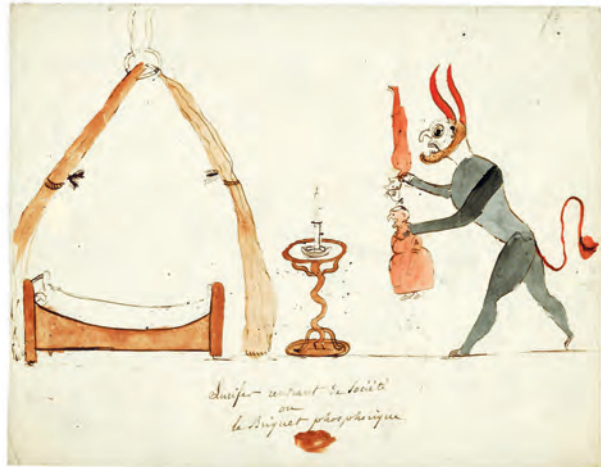 Lucifer rentrant de Société
ou
le Briquet phosphorique